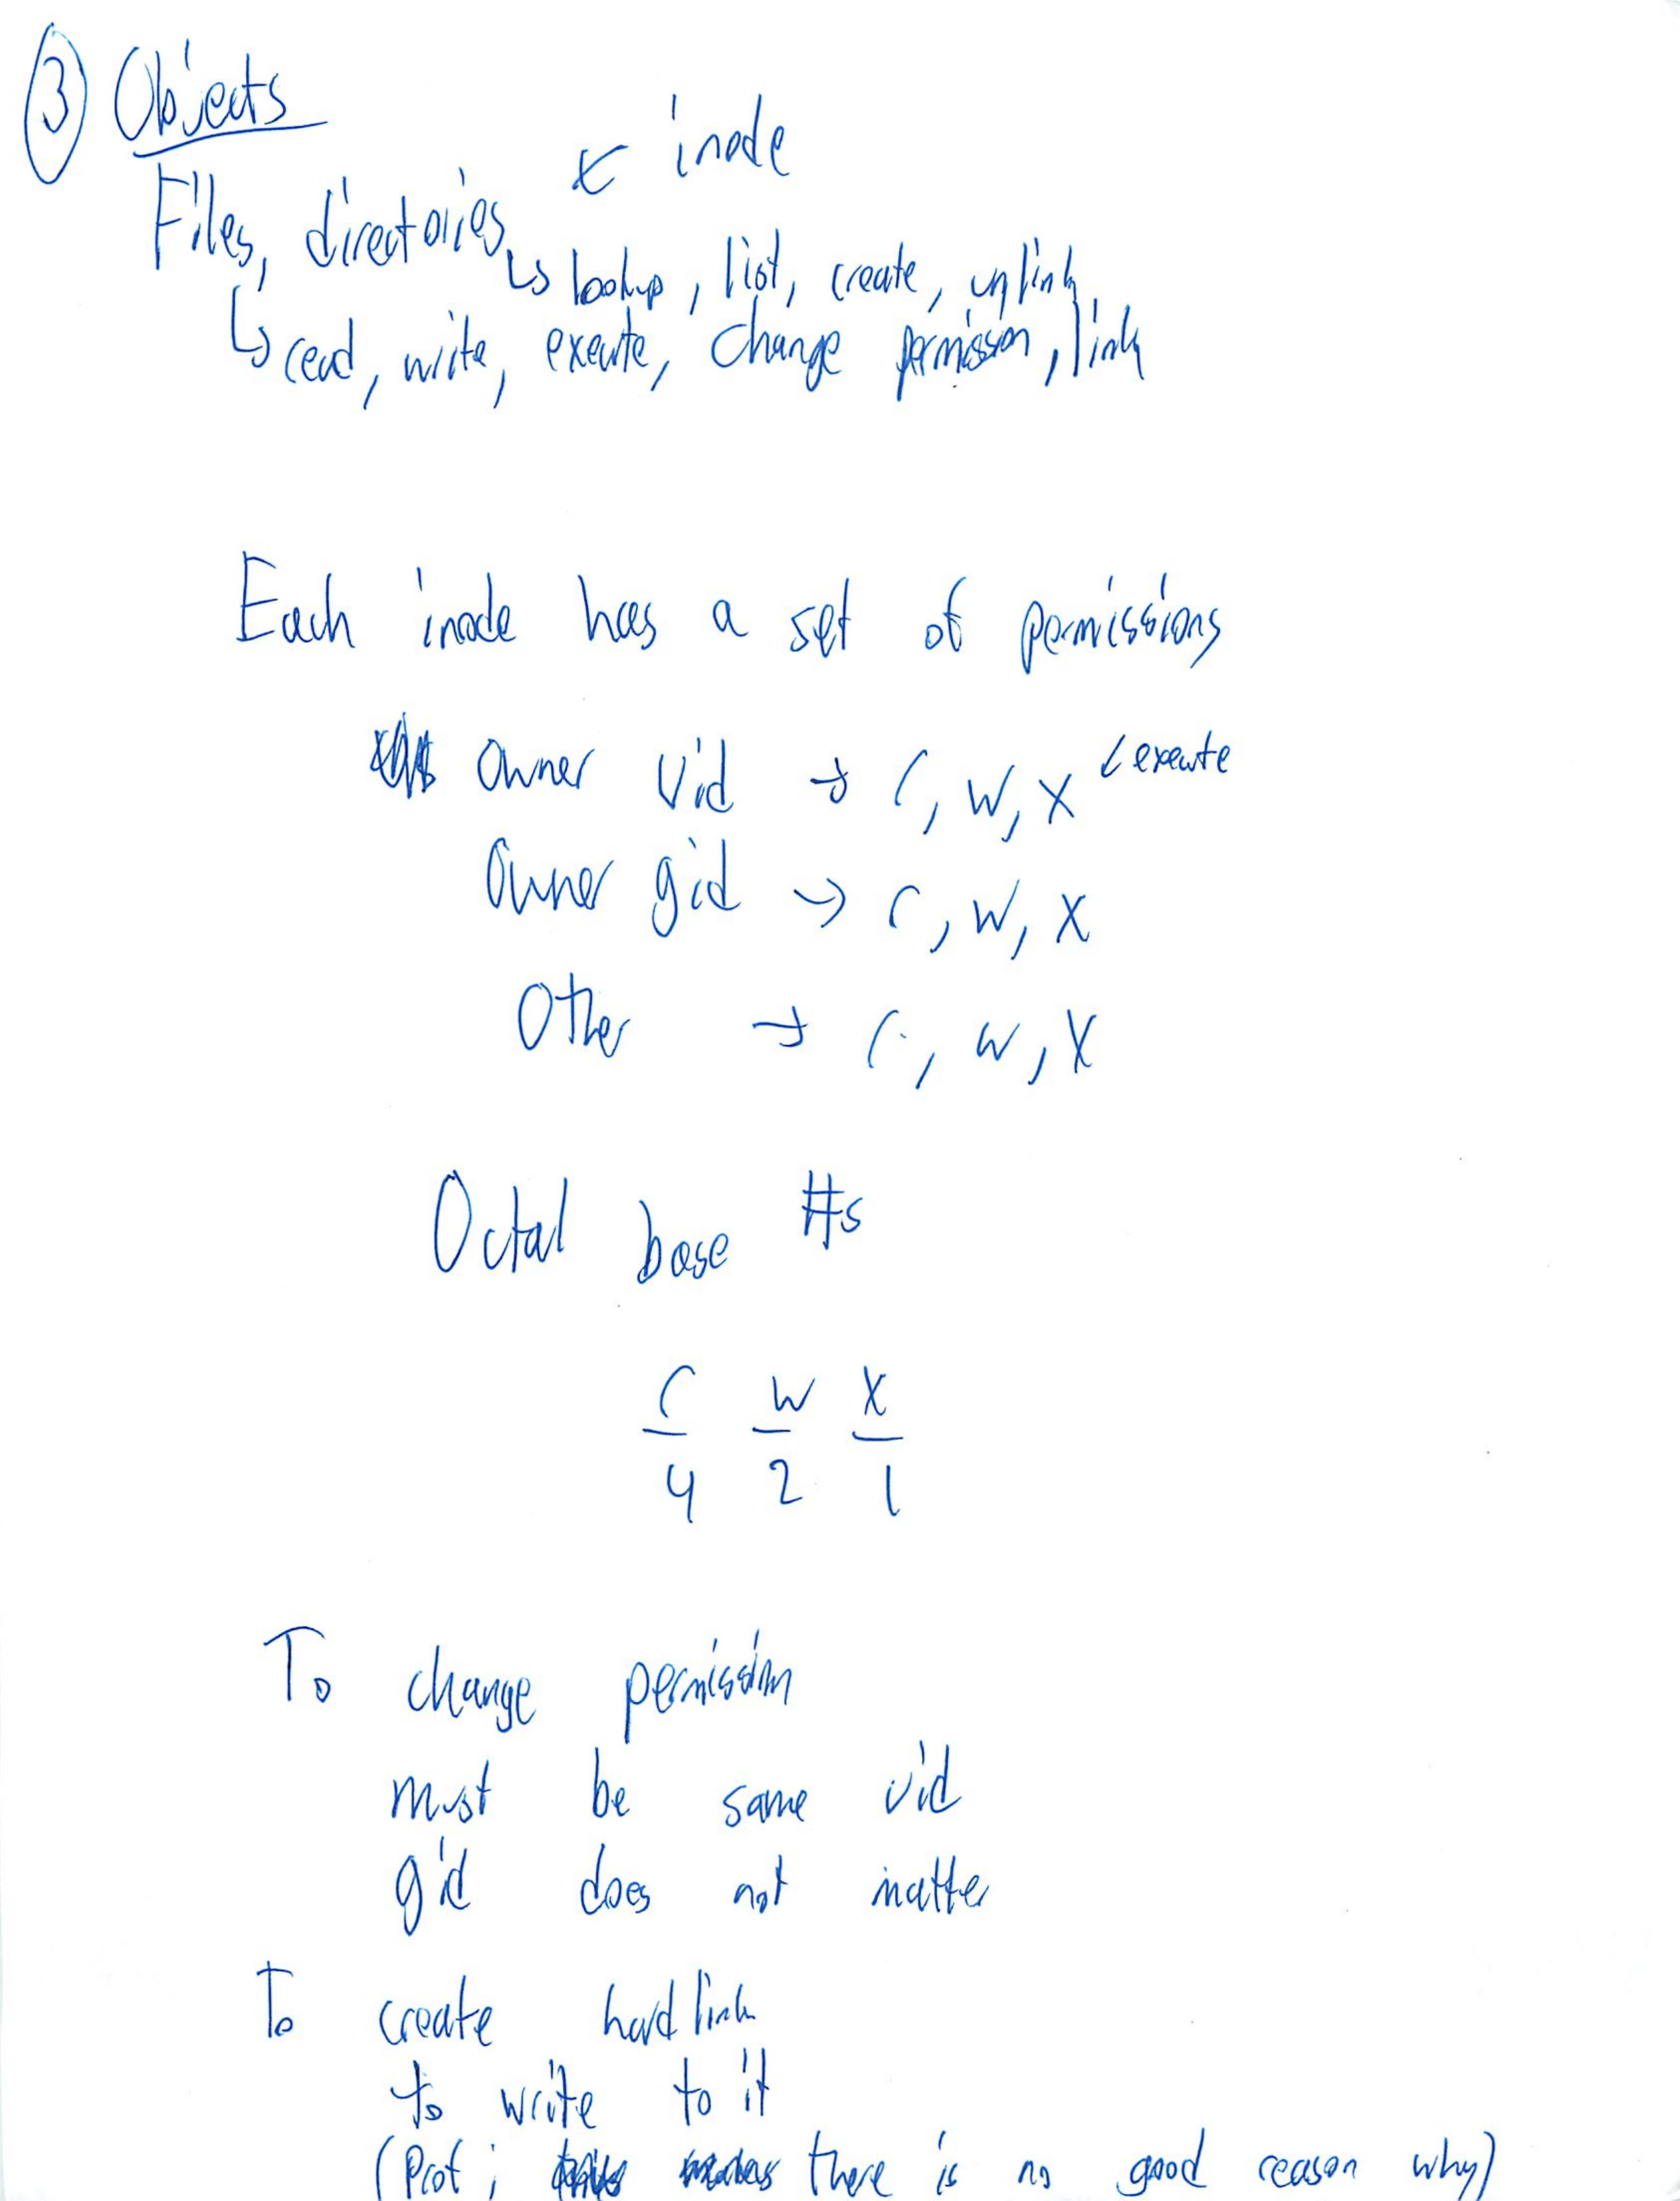 ③ Objects
← inode
Files, directories
↳ lookup, list, create, unlink
↳ read, write, execute, change permission, link
Each inode has a set of permissions
Owner Uid → r, w, x ↙ execute
Owner gid → r, w, x
Other → r, w, x
Octal base #s
r w x
4 2 1
To change permission
must be same uid
gid does not matter
To create hard link
to write to it
(Prof: there is no good reason why)